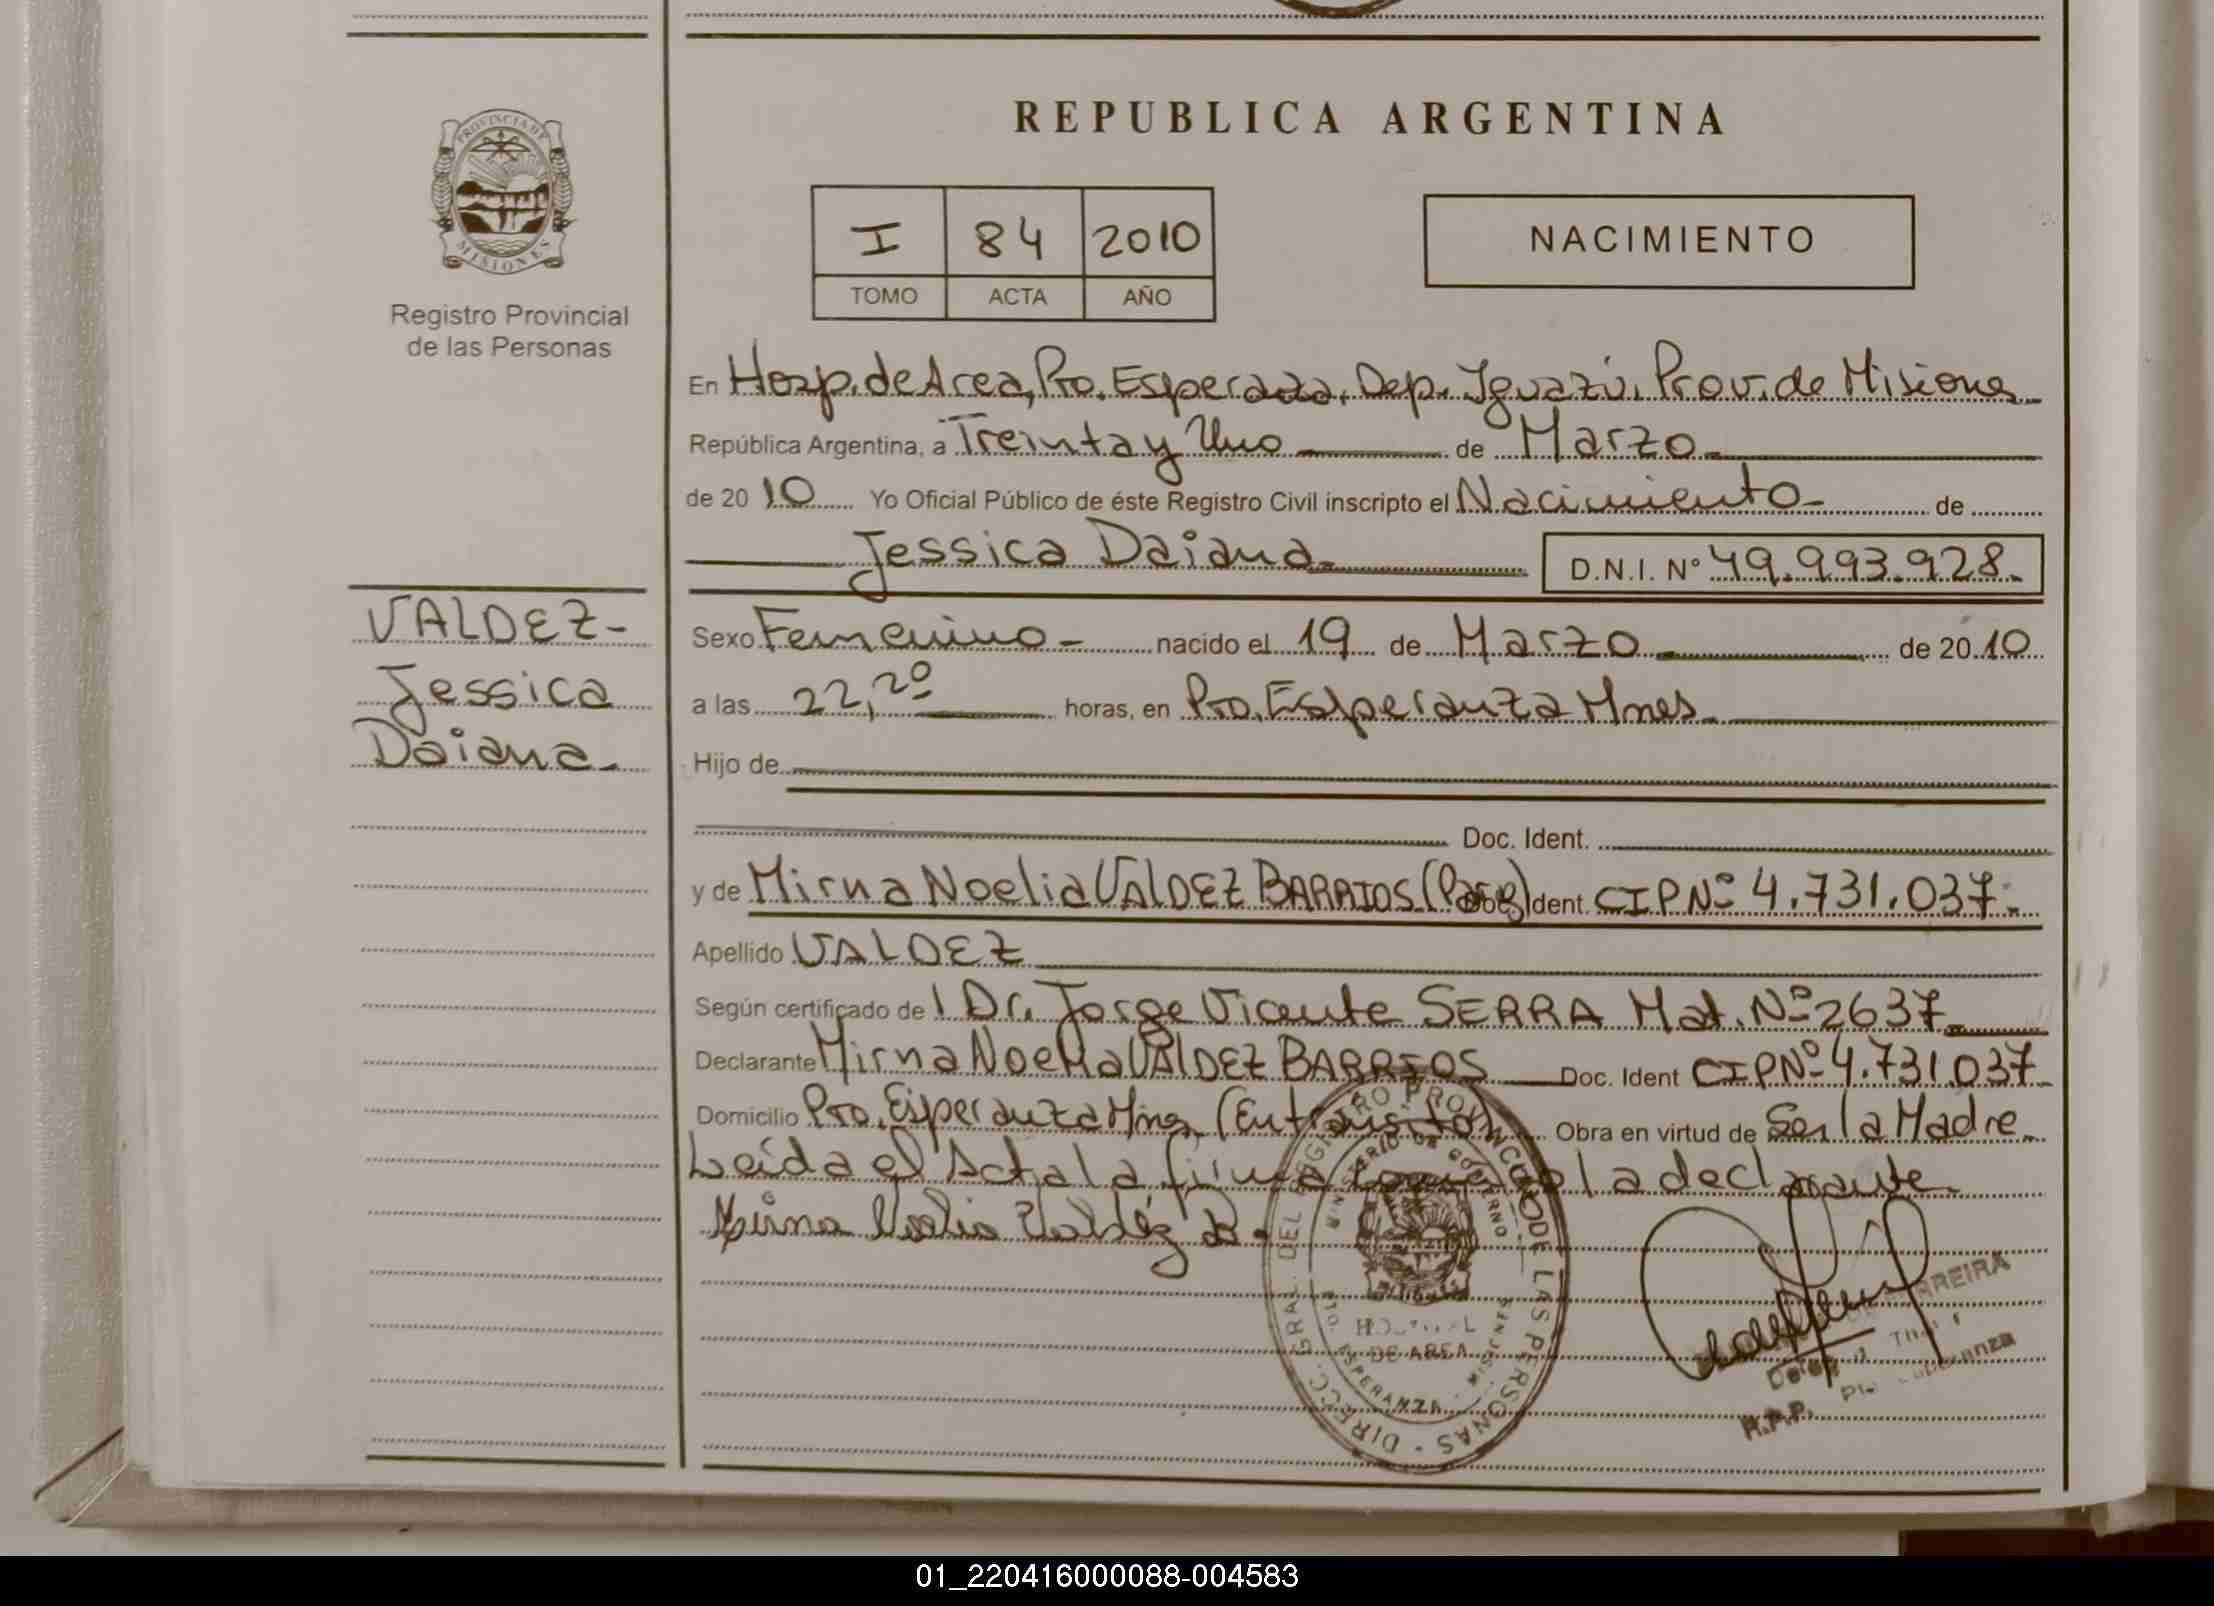 REPUBLICA ARGENTINA
PROVINCIA DE
MISIONES
Registro Provincial
de las Personas
I 84 2010
TOMO ACTA AÑO
NACIMIENTO
En Hosp. de Area, Pto. Esperanza, Dep. Iguazú, Prov. de Misiones
República Argentina, a Treinta y Uno de Marzo
de 2010 Yo Oficial Público de éste Registro Civil inscripto el Nacimiento de
Jessica Daiana D.N.I. N° 49.993.928.
VALDEZ-
Jessica
Daiana.
Sexo Femenino - nacido el 19 de Marzo de 2010
a las 22,20 horas, en Pto. Esperanza Mnes.
Hijo de
Doc. Ident.
y de Mirna Noelia VALDEZ BARRIOS (Parag) Doc. Ident. CIP Nº 4.731.037.
Apellido VALDEZ
Según certificado de 1 Dr. Jorge Vicente SERRA Mat. Nº 2637
Declarante Mirna Noelia VALDEZ BARRIOS Doc. Ident CIP Nº 4.731.037
Domicilio Pto. Esperanza Mnes. (En tránsito) Obra en virtud de Ser la Madre
Leída el Acta la firma conmigo la declarante
Mirna Noelia Valdéz B.
DIRECC. GRAL. DEL REGISTRO PROVINCIAL DE LAS PERSONAS
MINISTERIO DE GOBIERNO
HOSPITAL
DE AREA
ESPERANZA - MISIONES
R.P.P.
01_220416000088-004583